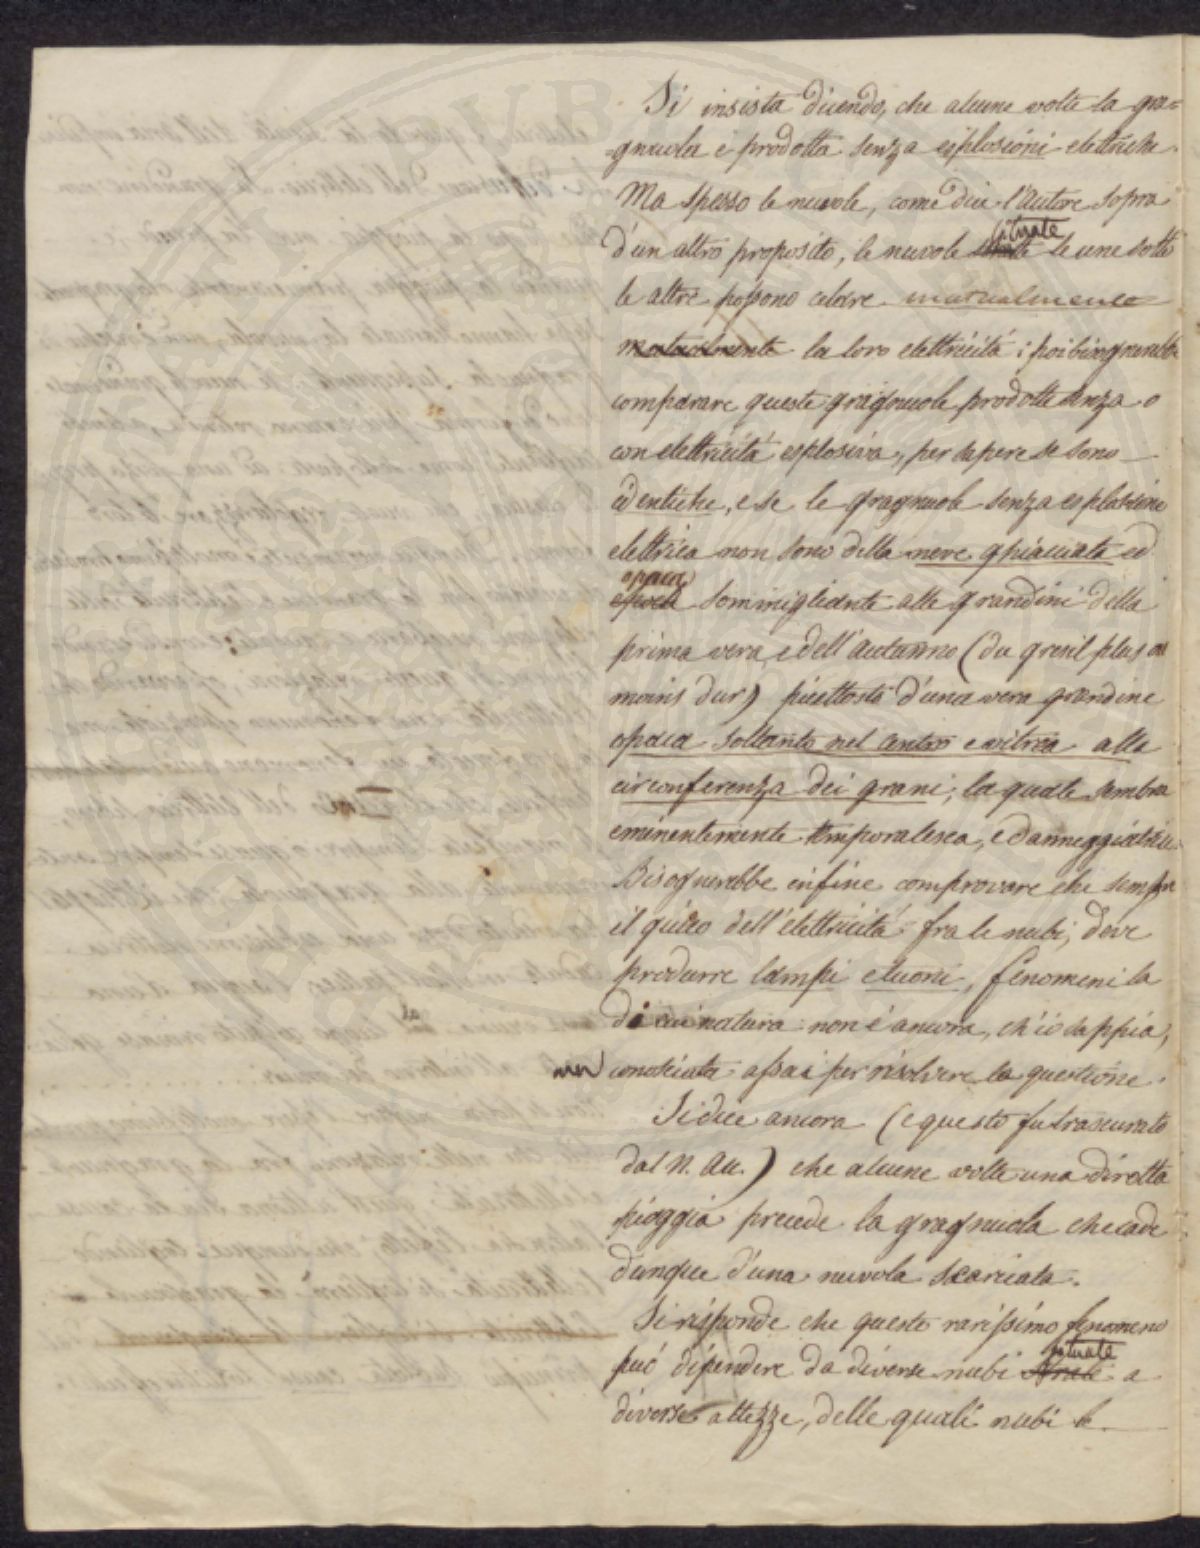 Si insista dicendo, che alcune volte la gra=
=gnuola è prodotta senza esplosioni elettriche.
Ma spesso le nuvole, come dice l'autore sopra
situate
d'un altro proposito, le nuvole le une sotto
le altre possono celare mutualmente
la loro elettricità; poi bisognerebbe
comparare queste gragnuole prodotte senza o
con elettricità esplosiva, per sapere se sono
identiche, e se le gragnuole senza esplosione
elettrica non sono della neve ghiacciata ed
opaca
somminigliante alle grandini della
prima vera, e dell'autunno (du gresil plus ou
moins dur) piuttosto d'una vera grandine
opaca soltanto nel centro e vitrea alla
circonferenza dei grani; la quale sembra
eminentemente temporalesca, e danneggiatrice.
Bisognerebbe infine comprovare che sempre
il giuoco dell'elettricità fra le nubi, deve
produrre lampi e tuoni, fenomeni la
di cui natura non è ancora, ch'io sappia,
conosciuta assai per risolvere la questione.
Si dice ancora (e questo fu trascurato
dal N. Au.) che alcune volte una dirotta
pioggia precede la gragnuola che cade
dunque d'una nuvola scaricata.
Si risponde che questo rarissimo fenomeno
situate
può dipendere da diverse nubi a
diverse altezze, delle quali nubi le